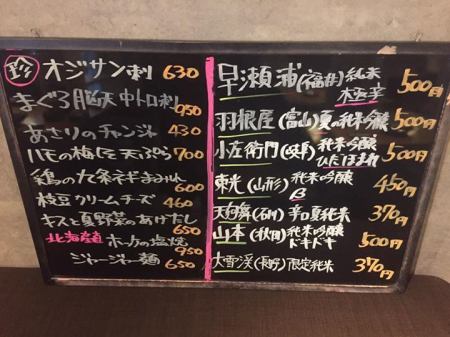 珍 オジサン刺 630
まぐろ脳天中トロ刺 950
あさりのチャンジャ 430
ハモの梅しそ天ぷら 700
鶏の九条ネギまみれ 600
枝豆クリームチーズ 460
キスと夏野菜のあげだし 650
北海道産 ホッケの塩焼 950
ジャージャー麺 650
早瀬浦(福井)純米 極辛 500円
羽根屋(富山)夏の純米吟醸 500円
小左衛門(岐阜)純米吟醸 ひだほまれ 500円
東光(山形)純米吟醸 450円
天狗舞(石川)辛口夏純米 370円
山本(秋田)純米吟醸 ドキドキ 500円
大雪渓(長野)限定純米 370円